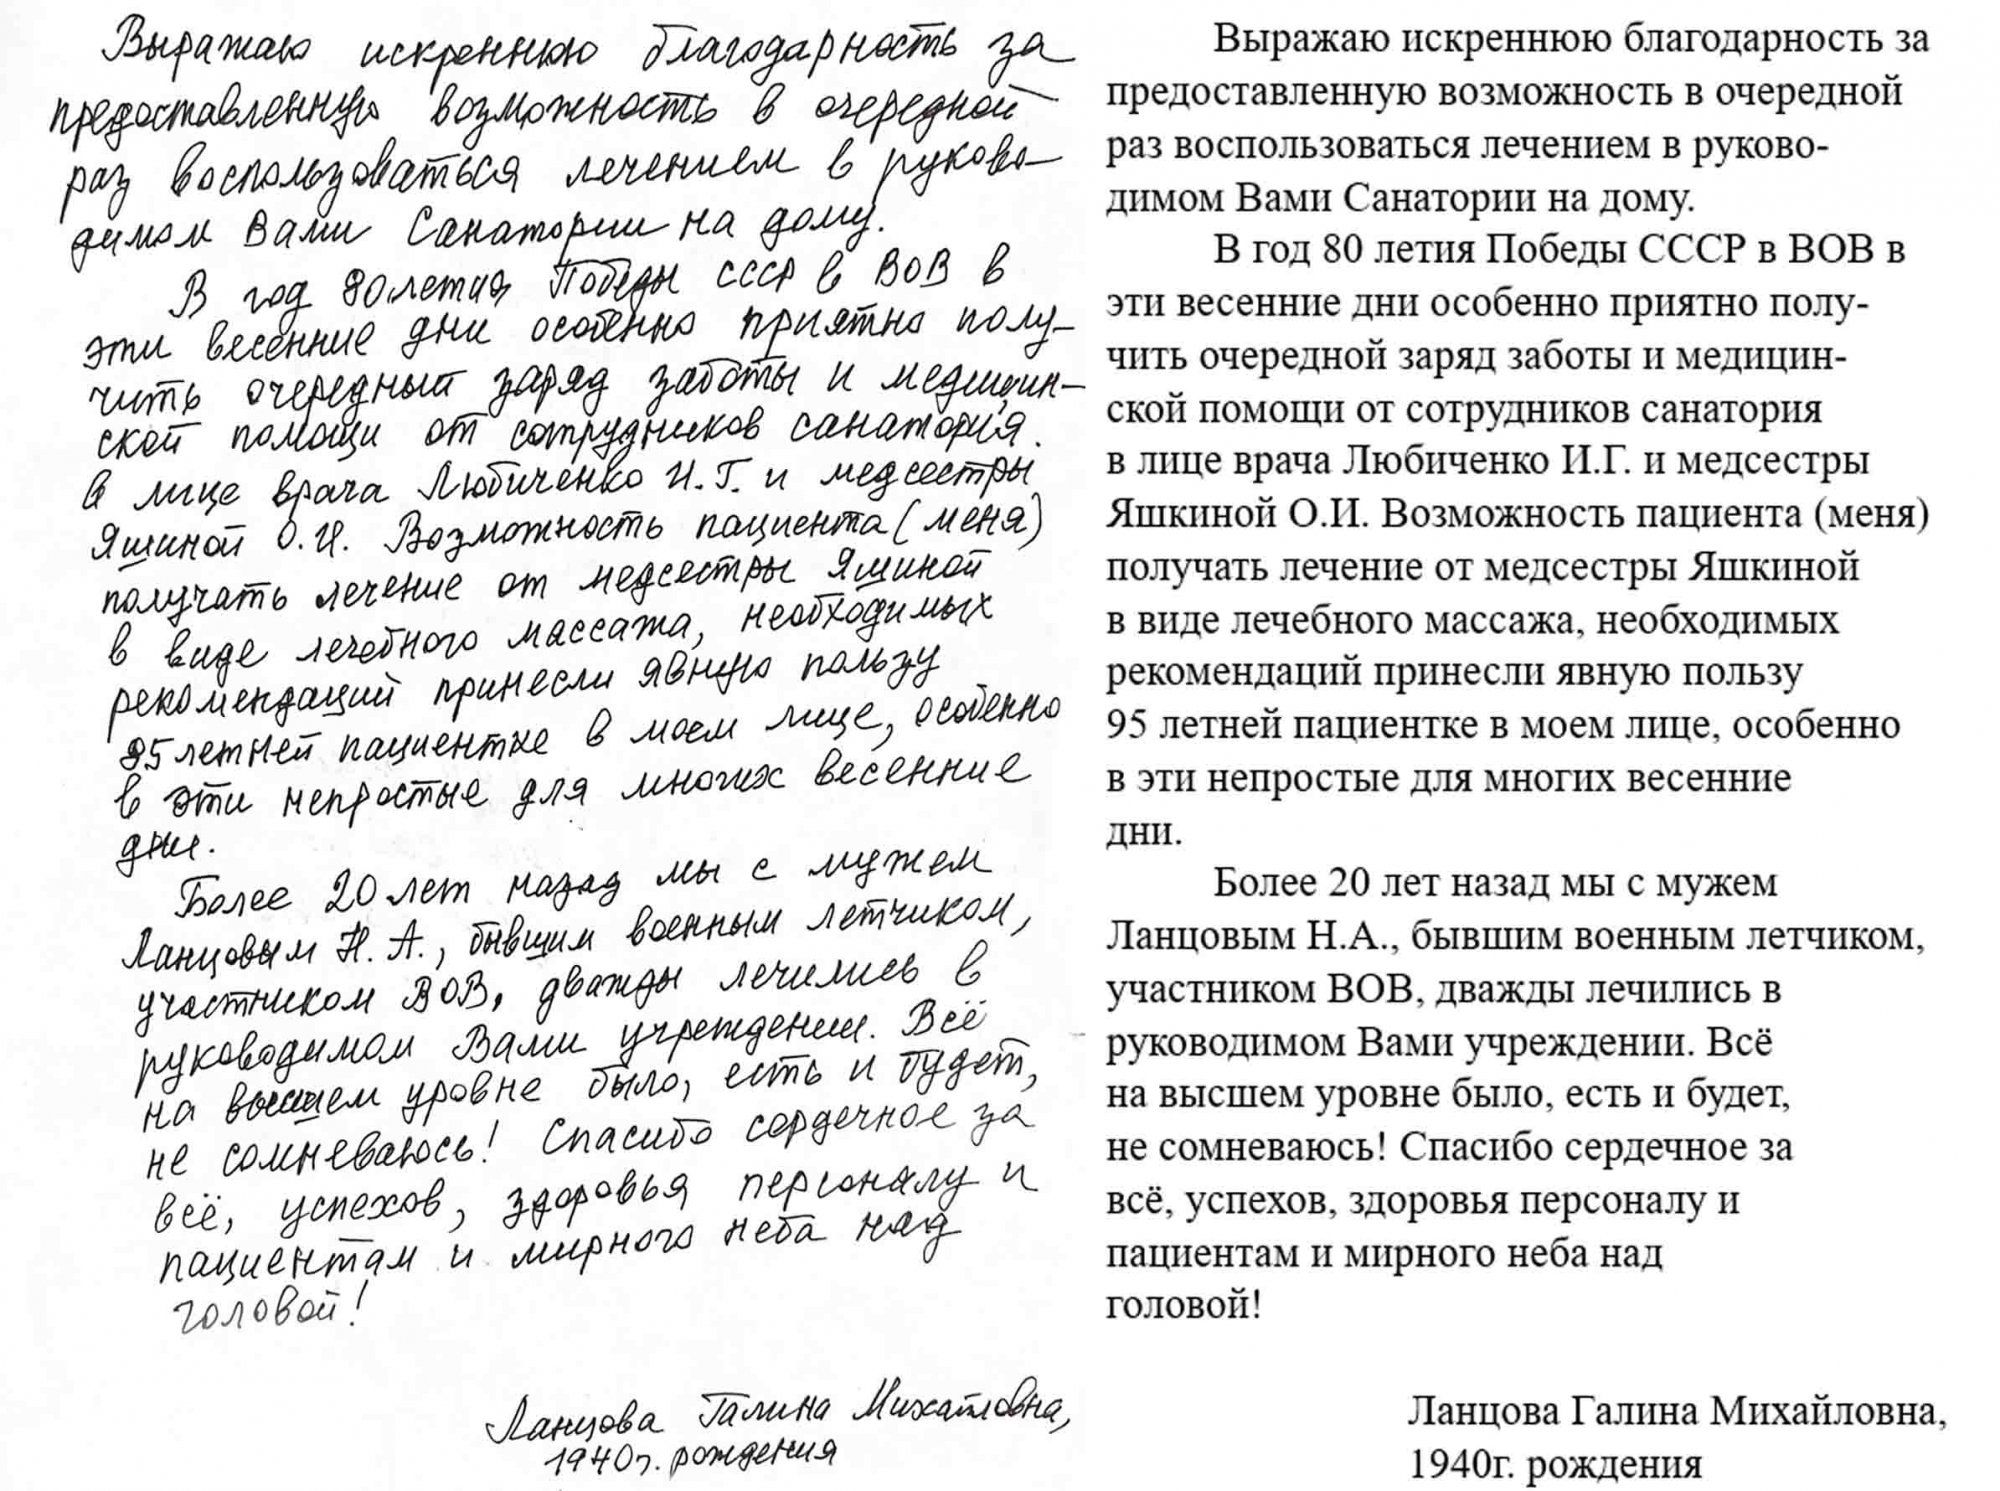 Выражаю искреннюю благодарность за
предоставленную возможность в очередной
раз воспользоваться лечением в руково-
димом Вами Санатории на дому.
В год 80летия Победы СССР в ВОВ в
эти весенние дни особенно приятно полу-
чить очередный заряд заботы и медицин-
ской помощи от сотрудников санатория.
в лице врача Любиченко И.Г. и медсестры
Яшиной О.И. Возможность пациента (меня)
получать лечение от медсестры Яшиной
в виде лечебного массажа, необходимых
рекомендаций принесли явную пользу
85летней пациентке в моем лице, особенно
в эти непростые для многих весенние
дни.
Более 20 лет назад мы с мужем
Ланцовым Н.А., бывшим военным летчиком,
участником ВОВ, дважды лечились в
руководимом Вами учреждении. Всё
на высшем уровне было, есть и будет,
не сомневаюсь! Спасибо сердечное за
всё, успехов, здоровья персоналу и
пациентам и мирного неба над
головой!
Ланцова Галина Михайловна,
1940г. рождения
Выражаю искреннюю благодарность за
предоставленную возможность в очередной
раз воспользоваться лечением в руково-
димом Вами Санатории на дому.
В год 80 летия Победы СССР в ВОВ в
эти весенние дни особенно приятно полу-
чить очередной заряд заботы и медицин-
ской помощи от сотрудников санатория
в лице врача Любиченко И.Г. и медсестры
Яшкиной О.И. Возможность пациента (меня)
получать лечение от медсестры Яшкиной
в виде лечебного массажа, необходимых
рекомендаций принесли явную пользу
95 летней пациентке в моем лице, особенно
в эти непростые для многих весенние
дни.
Более 20 лет назад мы с мужем
Ланцовым Н.А., бывшим военным летчиком,
участником ВОВ, дважды лечились в
руководимом Вами учреждении. Всё
на высшем уровне было, есть и будет,
не сомневаюсь! Спасибо сердечное за
всё, успехов, здоровья персоналу и
пациентам и мирного неба над
головой!
Ланцова Галина Михайловна,
1940г. рождения